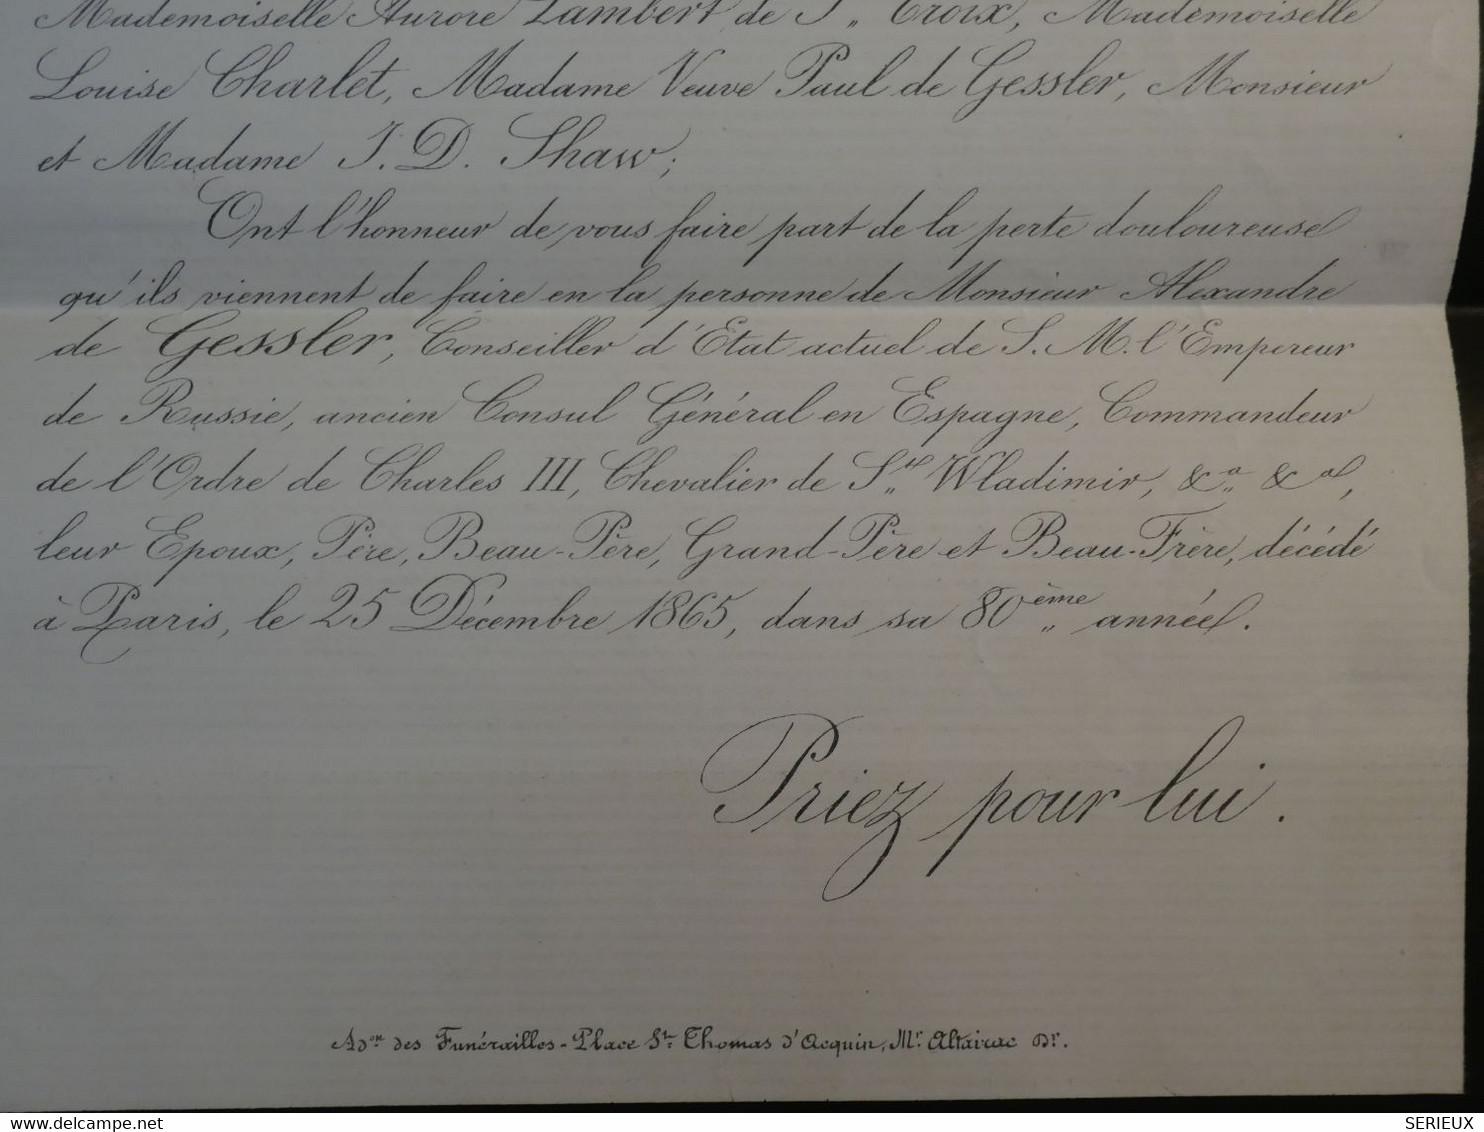 Mademoiselle Aurore Lambert de S.. Croix, Mademoiselle
Louise Charlet, Madame Veuve Paul de Gessler, Monsieur
et Madame J. D. Shaw;
Ont l'honneur de vous faire part de la perte douloureuse
qu'ils viennent de faire en la personne de Monsieur Alexandre
de Gessler, Conseiller d'Etat actuel de S. M. l'Empereur
de Russie, ancien Consul Général en Espagne, Commandeur
de l'Ordre de Charles III, Chevalier de St. Wladimir, &a. &a,
leur Epoux, Père, Beau-Père, Grand-Père et Beau-Frère, décédé
à Paris, le 25 Décembre 1865, dans sa 80ème année.
Priez pour lui.
Adon des Funérailles - Place St. Thomas d'Acquin, Mr. Altairac Dr.
delcampe.net
SERIEUX